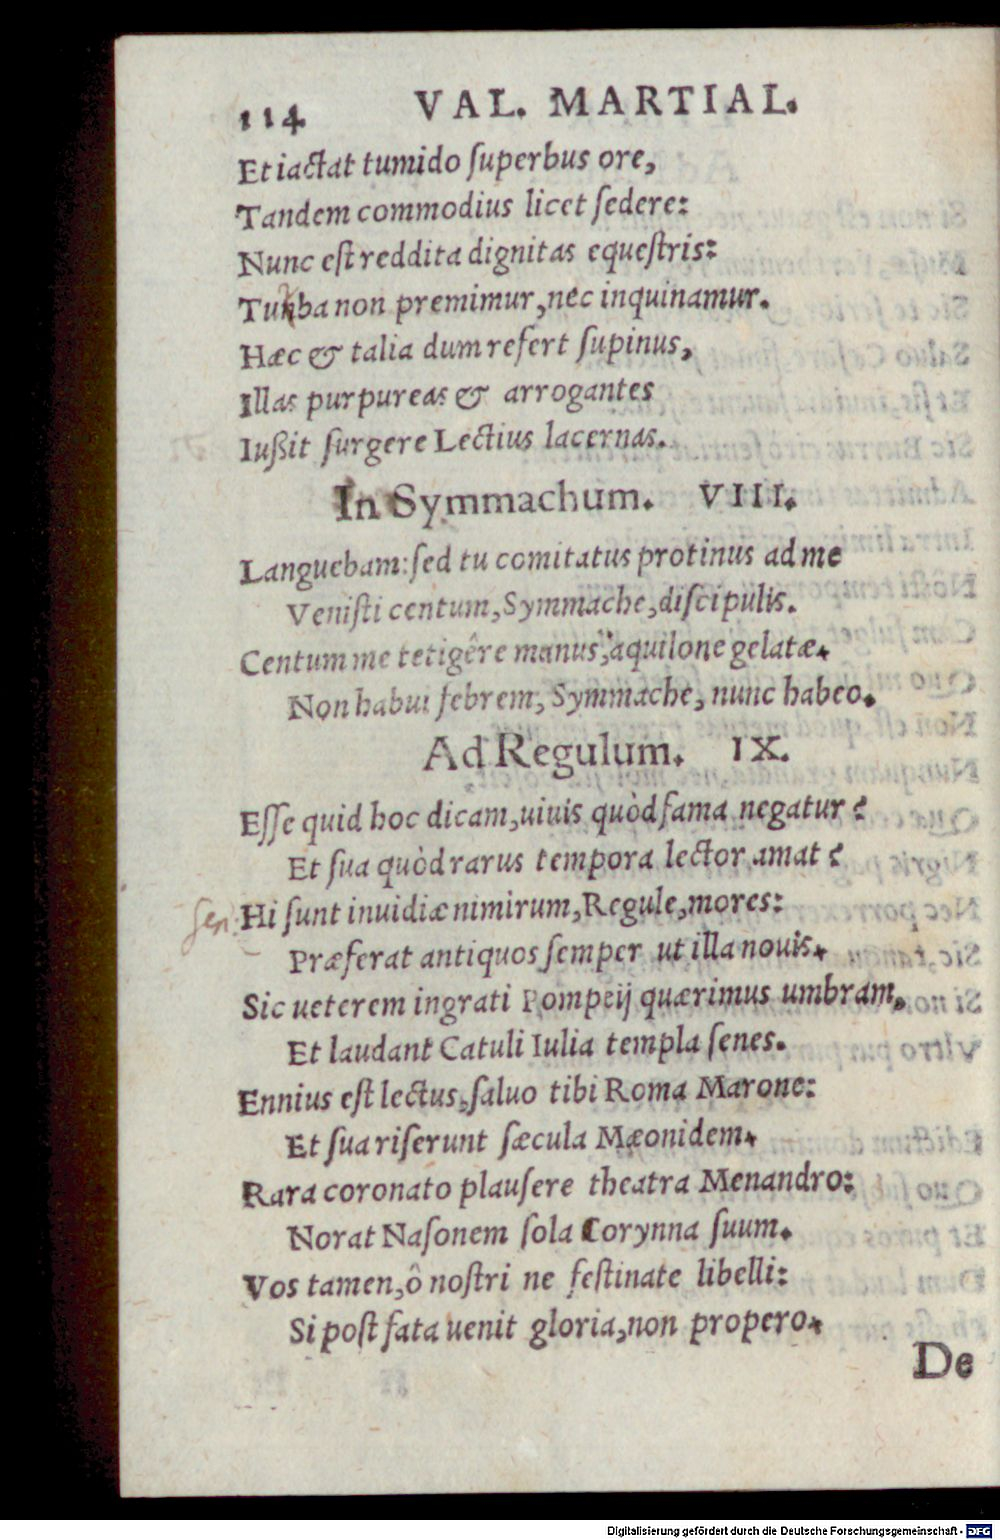 114 VAL. MARTIAL.
Et iactat tumido ſuperbus ore,
Tandem commodius licet ſedere:
Nunc eſt reddita dignitas equeſtris:
Turba non premimur, nec inquinamur.
Hæc & talia dum refert ſupinus,
Illas purpureas & arrogantes
Iußit ſurgere Lectius lacernas.
In Symmachum. VIII.
Languebam: ſed tu comitatus protinus ad me
Veniſti centum, Symmache, diſcipulis.
Centum me tetigêre manus, aquilone gelatæ.
Non habui febrem, Symmache, nunc habeo.
Ad Regulum. IX.
Eſſe quid hoc dicam, uiuis quòd fama negatur?
Et ſua quòd rarus tempora lector amat?
Hi ſunt inuidiæ nimirum, Regule, mores:
Præferat antiquos ſemper ut illa nouis.
Sic ueterem ingrati Pompeij quærimus umbram,
Et laudant Catuli Iulia templa ſenes.
Ennius eſt lectus, ſaluo tibi Roma Marone:
Et ſua riſerunt ſæcula Mæonidem.
Rara coronato plauſere theatra Menandro:
Norat Naſonem ſola Corynna ſuum.
Vos tamen, ô noſtri ne feſtinate libelli:
Si poſt fata uenit gloria, non propero.
De
Digitalisierung gefördert durch die Deutsche Forschungsgemeinschaft - DFG